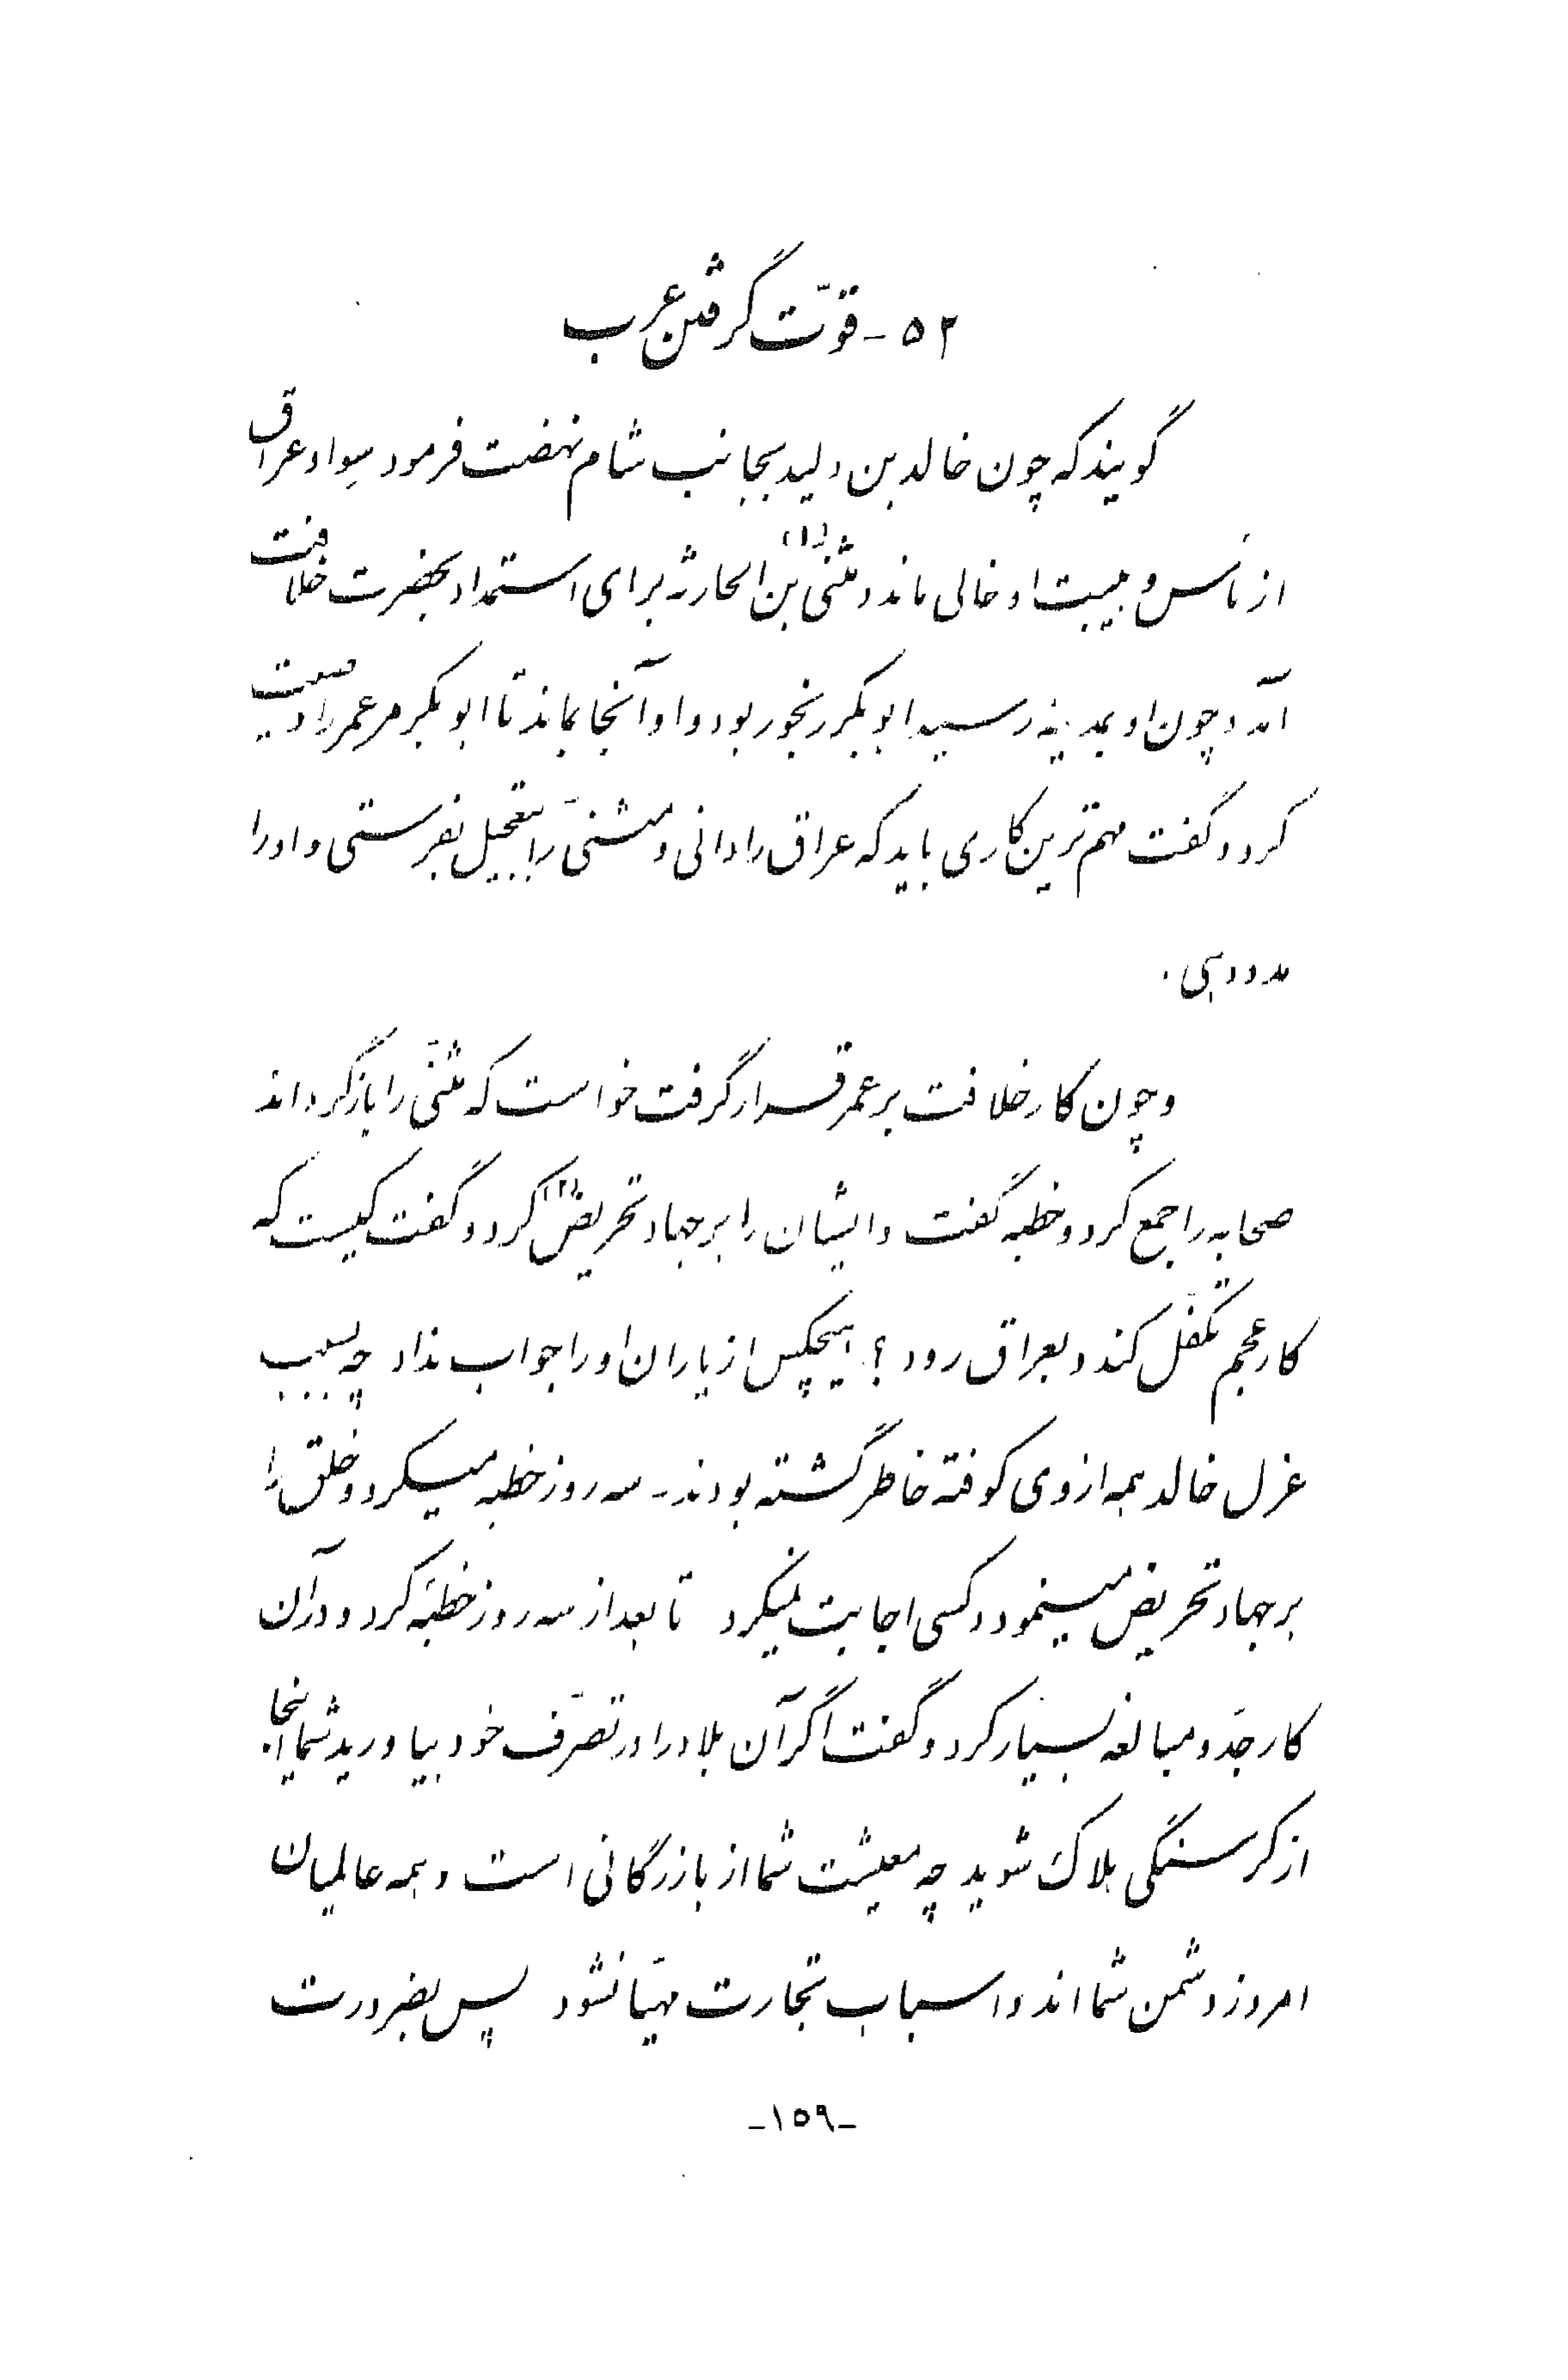 ۵۲ - قوّت گرفتن عرب
گویند که چون خالد بن ولید بجانب شام نهضت فرمود سواد عراق
از بأس و هیبت او خالی ماند و مثنی (۱) بن الحارثه برای استمداد بحضرت خلافت
آمد و چون او بمدینه رسید ابوبکر رنجور بود و او آنجا بماند تا ابوبکر مر عمر را وصیت
کرد و گفت مهم ترین کاری باید که عراق را دانی و مثنی را بتعجیل بفرستی و او را
مدد دهی .
و چون کار خلافت بر عمر قرار گرفت خواست که مثنّی را بازگرداند
صحابه را جمع کرد و خطبه گفت و ایشان را بر جهاد تحریض (۲) کرد و گفت کیست که
کار عجم تکفّل کند و بعراق رود ؟ هیچکس از یاران او را جواب نداد چه بسبب
عزل خالد همه از وی کوفته خاطر گشته بودند - سه روز خطبه میکرد و خلق را
بر جهاد تحریض مینمود و کسی اجابت نمیکرد تا بعد از سه روز خطبه کرد و در آن
کار جدّ و مبالغه بسیار کرد و گفت اگر آن بلاد را در تصرّف خود بیاورید شما اینجا
از گرسنگی هلاک شوید چه معیشت شما از بازرگانی است و همه عالمیان
امروز دشمن شما اند و اسباب تجارت مهیّا نشود پس بضرورت
-۱۵۹-